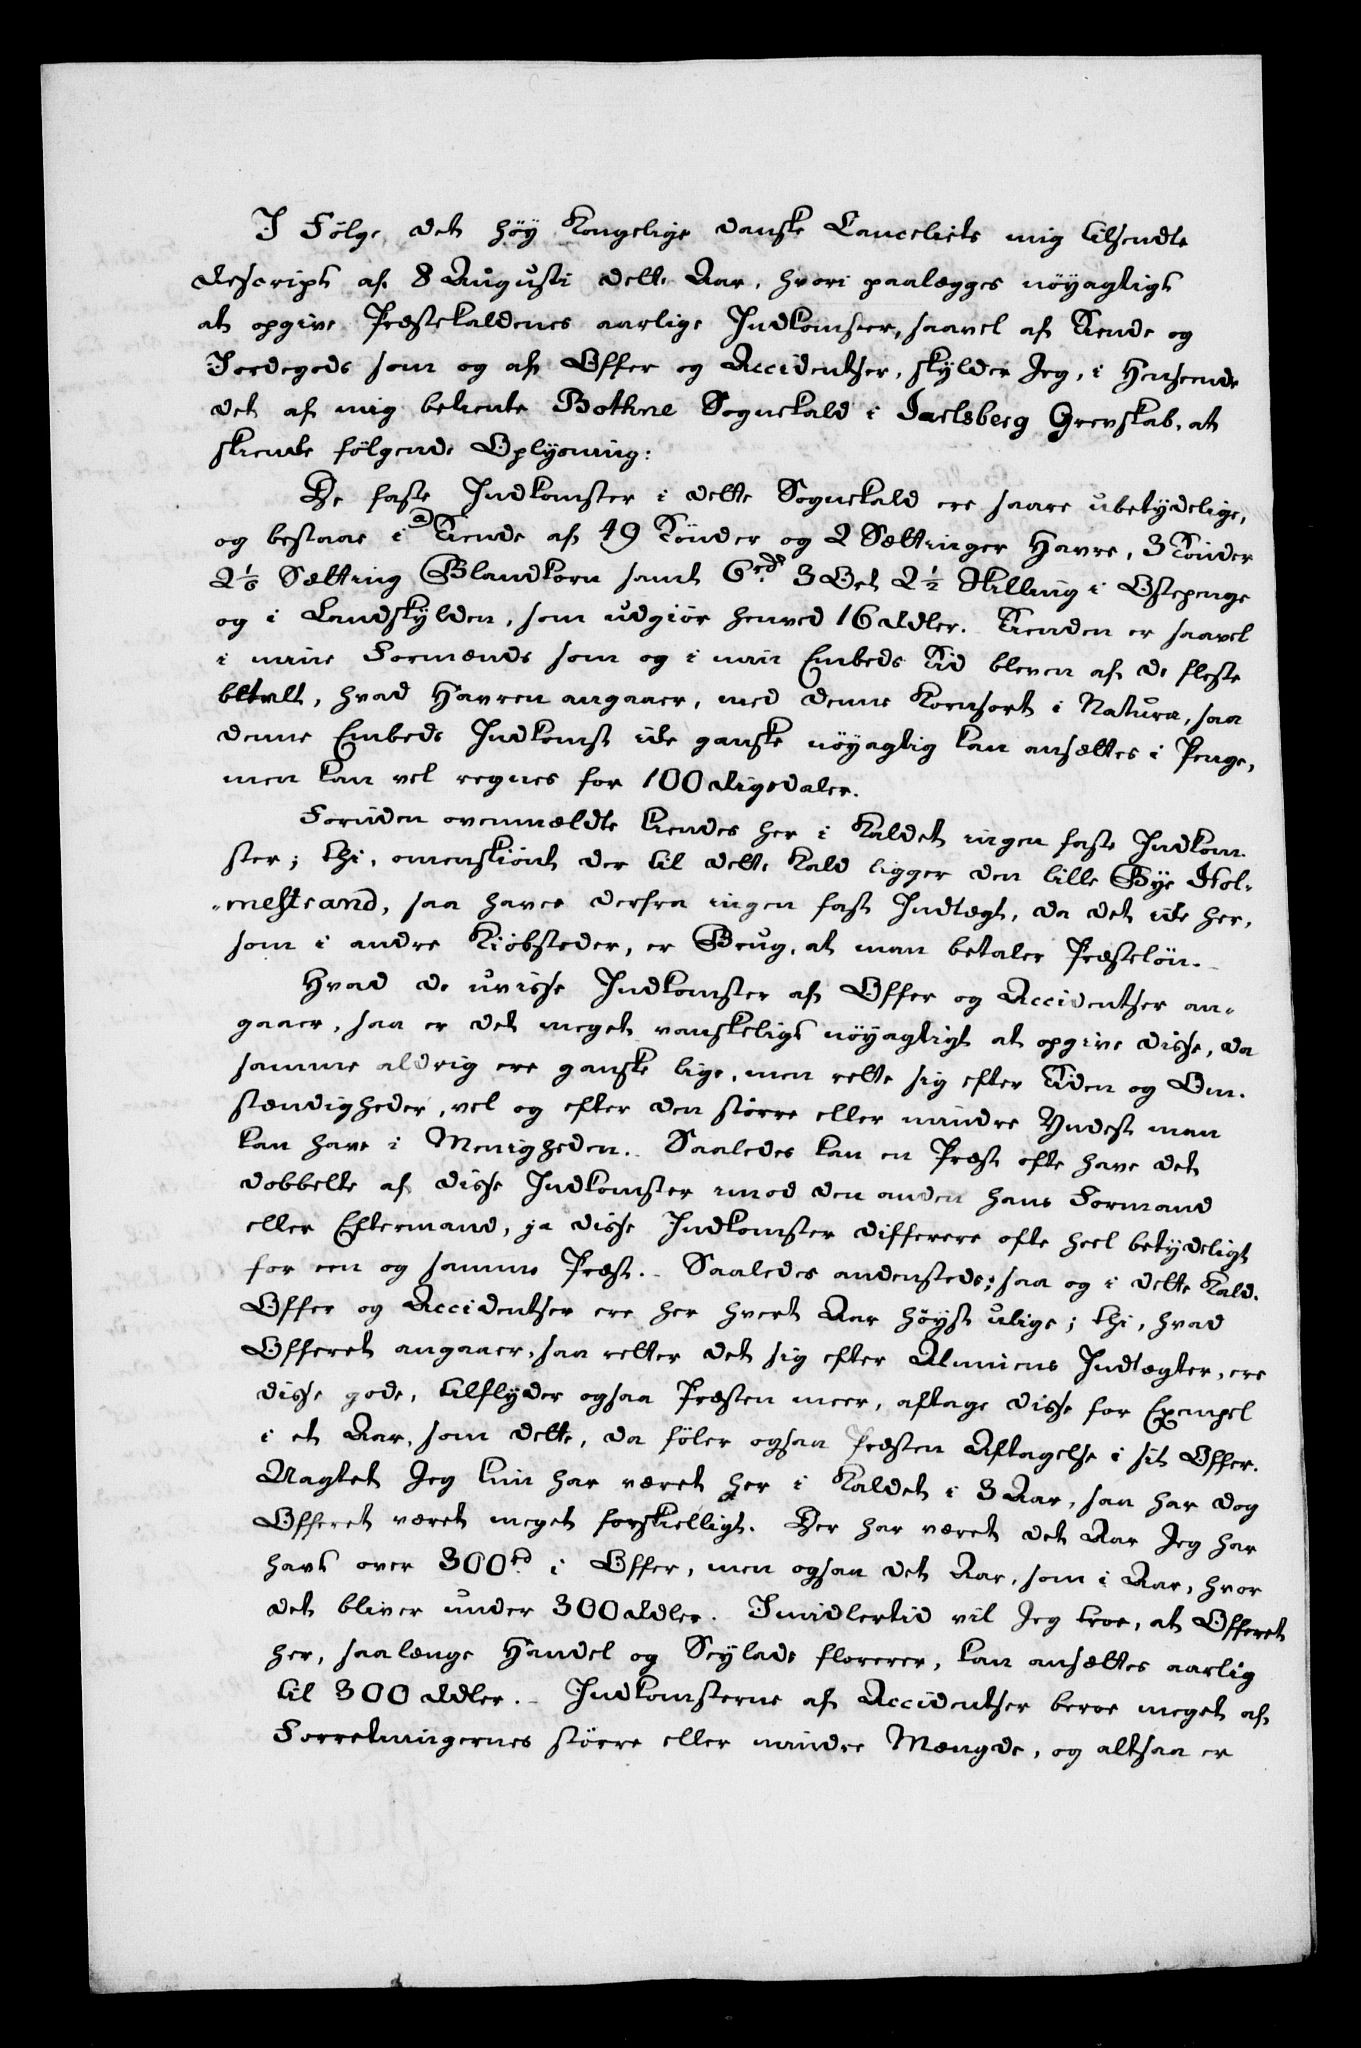 I Følge det høy Kongelige danske Cancelies mig tilsendte
Rescript af 8 Augusti dette Aar, hvori paalægges nøyagtigt
at opgive Præstekaldenes aarlige Indkomster, saavel af Tiende og
Jordegods som og af Offer og Accidentser, skylder Jeg, i Henseende
det af mig betiente Bothne Sognekald i Jarlsberg Grevskab, at
skienke følgende Oplysning:
De faste Indkomster i dette Sognekald ere saare ubetydelige,
og bestaae i Tiende af 49 Tönder og 2 Sættinger Havre, 3 Tönder
2 1/6 Sætting Blandkorn samt 6 rd 3 Ort 2 1/2 Skilling i Ostepenge
og i Landskylden, som udgiør henved 16 Rdler. Tienden er saavel
i mine Formænds som og i min Embeds Tid bleven af de fleste
betalt, hvad Havren angaaer, med denne Kornsort i Natura, saa
denne Embeds Indkomst ikke ganske nøyagtig kan ansættes i Penge,
men kan vel regnes for 100 Rigsdaler.
Foruden ovenmældte kiendes her i Kaldet ingen faste Indkom-
ster; thi, omenskiönt der til dette Kald ligger den lille Bye Hol-
mestrand, saa haves derfra ingen fast Indtægt, da det ikke her,
som i andre Kiöbsteder, er Brug, at man betaler Præstelön.
Hvad de uvisse Indkomster af Offer og Accidentser an-
gaaer, saa er det meget vanskeligt nöyagtigt at opgive disse, da
samme aldrig ere ganske lige, men rette sig efter Tiden og Om-
stændigheder, vel og efter den större eller mindre Yndest man
kan have i Menigheden. Saaledes kan en Præst ofte have det
dobbelte af disse Indkomster imod den anden hans Formand
eller Eftermand, ja disse Indkomster differere ofte heel betydeligt
for een og samme Præst. Saaledes andensteds; saa og i dette Kald.
Offer og Accidentser ere her hvert Aar höyst ulige; thi, hvad
Offeret angaaer, saa retter det sig efter Almuens Indtægter, ere
disse gode, tilflyder ogsaa Præsten meer, aftage disse for Exempel
i et Aar, som dette, da föler ogsaa Præsten Aftagelse i sit Offer.
Uagtet Jeg kun har været her i Kaldet i 3 Aar, saa har dog
Offeret været meget forskielligt. Der har været det Aar Jeg har
havt over 300 rd i Offer, men ogsaa det Aar, som i Aar, hvor
det bliver under 300 Rdler. Imidlertid vil Jeg troe, at Offeret
her, saalænge Handel og Seylads florerer, kan ansættes aarlig
til 300 Rdler. Indkomsterne af Accidentser beroe meget af
Forretningernes större eller mindre Mængde, og altsaa er